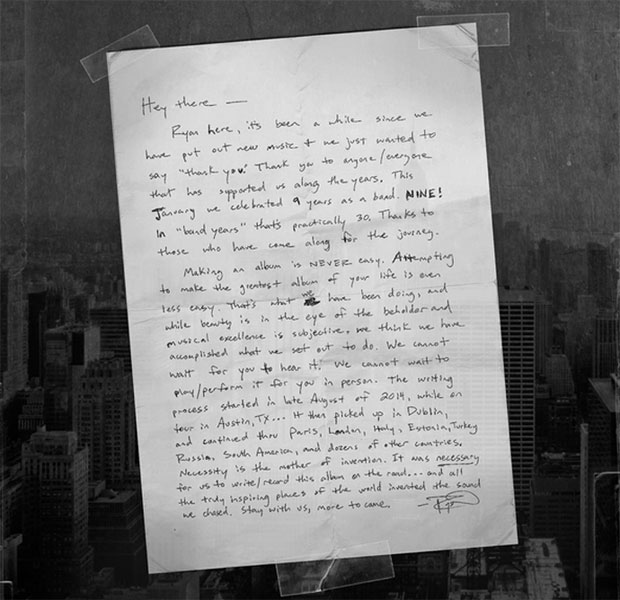 Hey there —
Ryan here, it's been a while since we
have put out new music + we just wanted to
say "thank you." Thank you to anyone/everyone
that has supported us along the years. This
January we celebrated 9 years as a band. NINE!
In "band years" that's practically 30. Thanks to
those who have come along for the journey.
Making an album is NEVER easy. Attempting
to make the greatest album of your life is even
less easy. That's what we have been doing, and
while beauty is in the eye of the beholder and
musical excellence is subjective, we think we have
accomplished what we set out to do. We cannot
wait for you to hear it. We cannot wait to
play/perform it for you in person. The writing
process started in late August of 2014, while on
tour in Austin, TX... It then picked up in Dublin,
and continued thru Paris, London, Italy, Estonia, Turkey
Russia, South America, and dozens of other countries.
Necessity is the mother of invention. It was necessary
for us to write/record this album on the road... and all
the truly inspiring places of the world invented the sound
we chased. Stay with us, more to come.